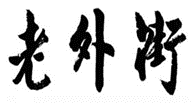 老外街